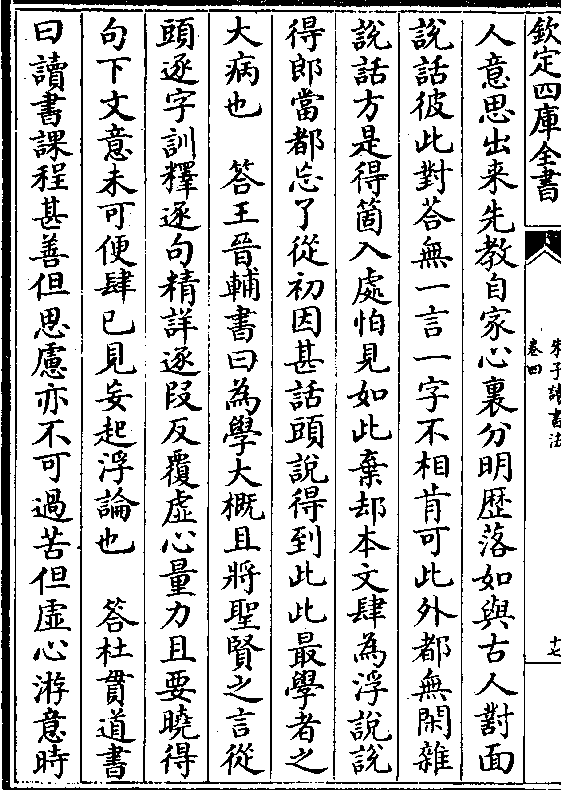 欽定四庫全書
朱子讀書法
卷四
十七
人意思出来先教自家心裏分明歴落如與古人對面
說話彼此對荅無一言一字不相肯可此外都無閑雜
說話方是得箇入處怕見如此棄却本文肆為浮說說
得郎當都忘了從初因甚話頭說得到此此最學者之
大病也　荅王晉輔書曰為學大概且將聖賢之言從
頭逐字訓釋逐句精詳逐段反覆虛心量力且要曉得
句下文意未可便肆已見妄起浮論也　荅杜貫道書
曰讀書課程甚善但思慮亦不可過苦但虛心游意時